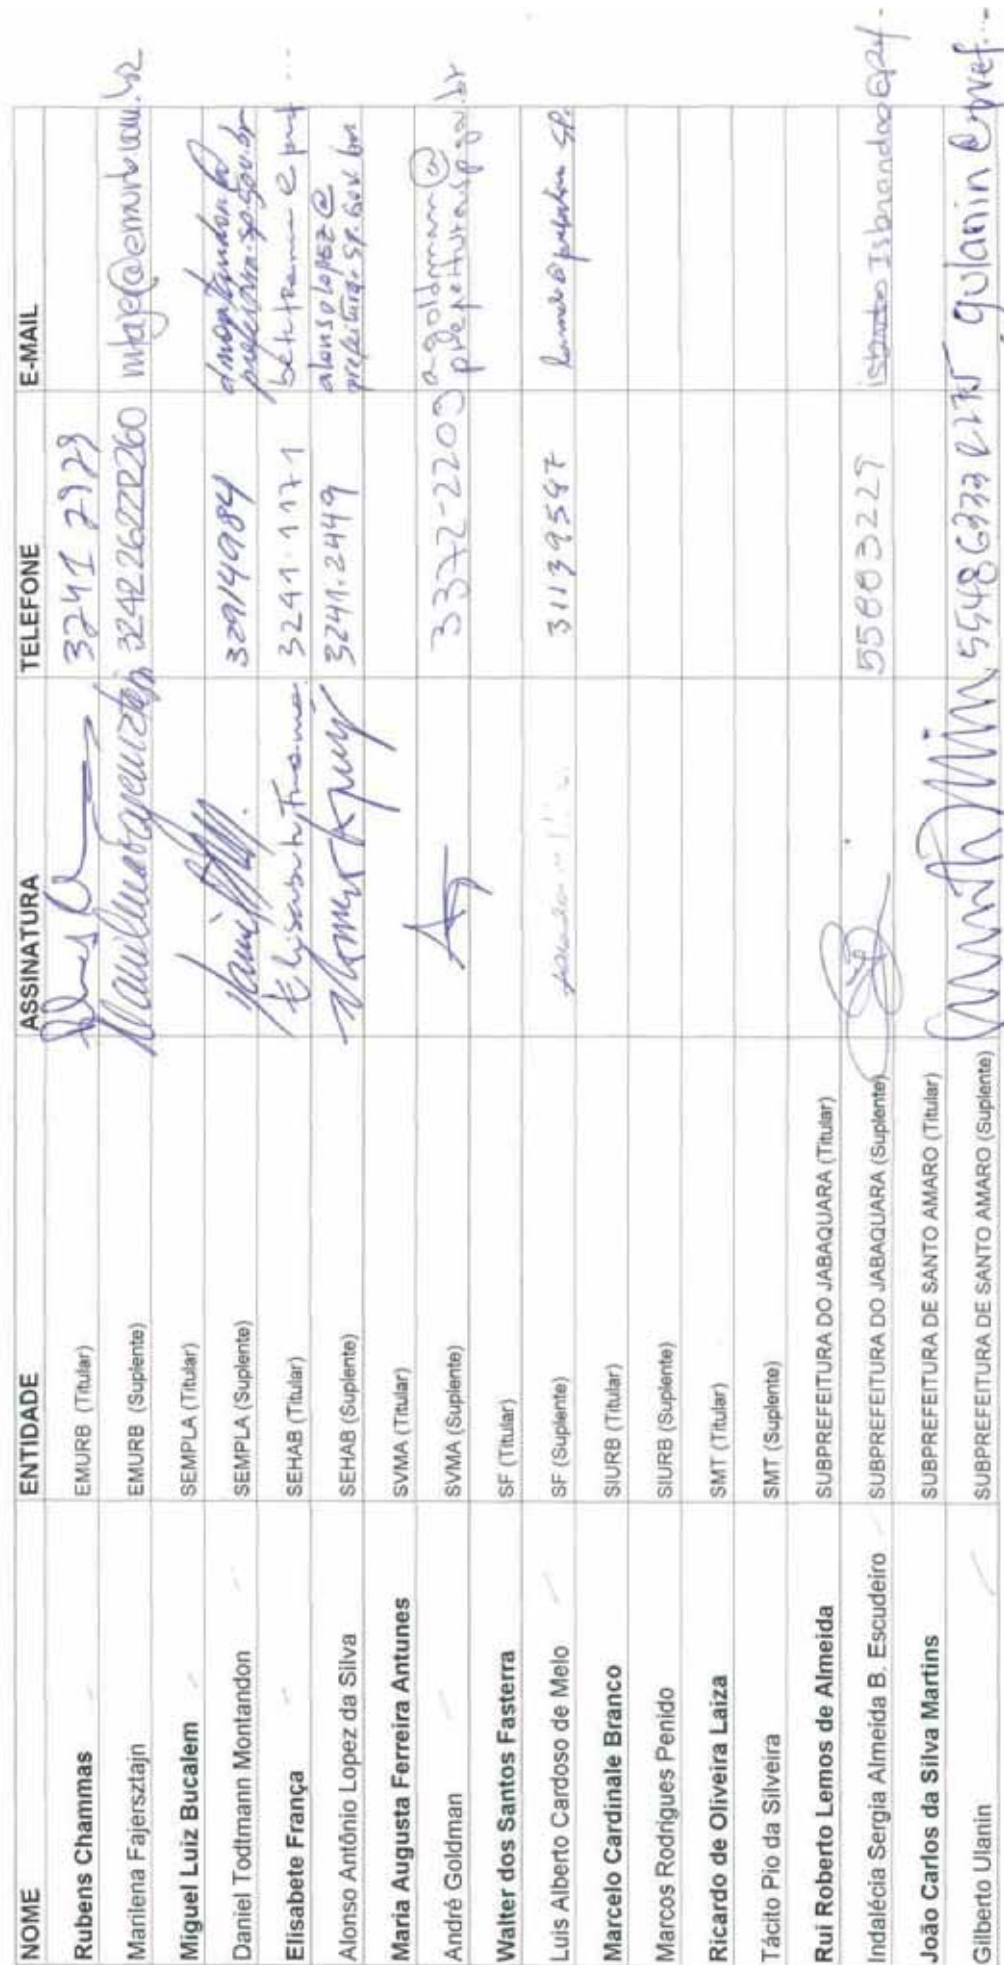 NOME ENTIDADE ASSINATURA TELEFONE E-MAIL
Rubens Chammas EMURB (Titular) 3241 2929
Marilena Fajersztajn EMURB (Suplente) 3242 2622 R260
Miguel Luiz Bucalem SEMPLA (Titular)
Daniel Todtmann Montandon SEMPLA (Suplente) 32914984 dmontandon@
prefeitura.sp.gov.br
Elisabete França SEHAB (Titular) 3241.1171
Alonso Antônio Lopez da Silva SEHAB (Suplente) 3241.2449 alonsolopez@
prefeitura.sp.gov.br
Maria Augusta Ferreira Antunes SVMA (Titular)
André Goldman SVMA (Suplente) 3372-2203 agoldman@
prefeitura.sp.gov.br
Walter dos Santos Fasterra SF (Titular)
Luis Alberto Cardoso de Melo SF (Suplente) 31139587
Marcelo Cardinale Branco SIURB (Titular)
Marcos Rodrigues Penido SIURB (Suplente)
Ricardo de Oliveira Laiza SMT (Titular)
Tácito Pio da Silveira SMT (Suplente)
Rui Roberto Lemos de Almeida SUBPREFEITURA DO JABAQUARA (Titular)
Indalécia Sergia Almeida B. Escudeiro SUBPREFEITURA DO JABAQUARA (Suplente)
João Carlos da Silva Martins SUBPREFEITURA DE SANTO AMARO (Titular)
Gilberto Ulanin SUBPREFEITURA DE SANTO AMARO (Suplente) gulanin@pref...